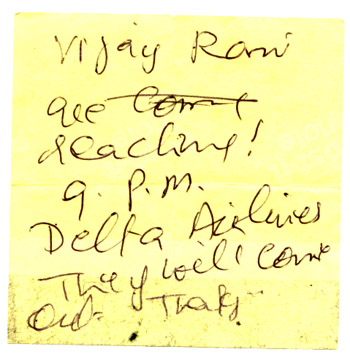 Vijay Rani
are
reaching!
9. P.M.
Delta Airlines
They will come
Out. Thaks.